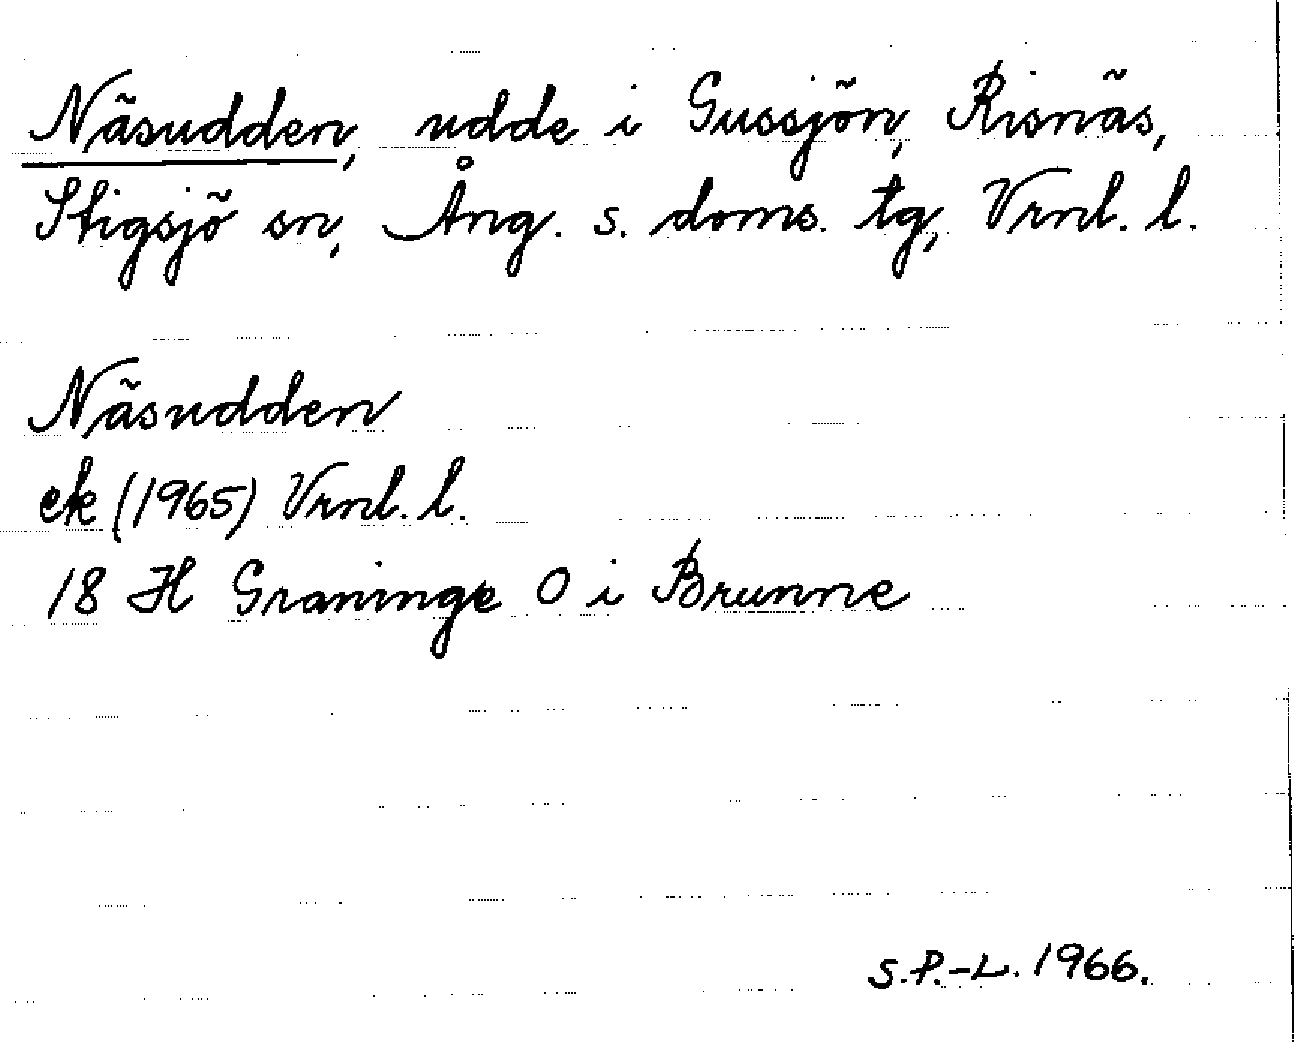 Näsudden, udde i Gussjön, Risnäs,
Stigsjö sn, Ång. s. doms. tg, Vrnl. l.
Näsudden
ek (1965) Vrnl. l.
18 H Graninge O i Brunne
S.P.-L. 1966.